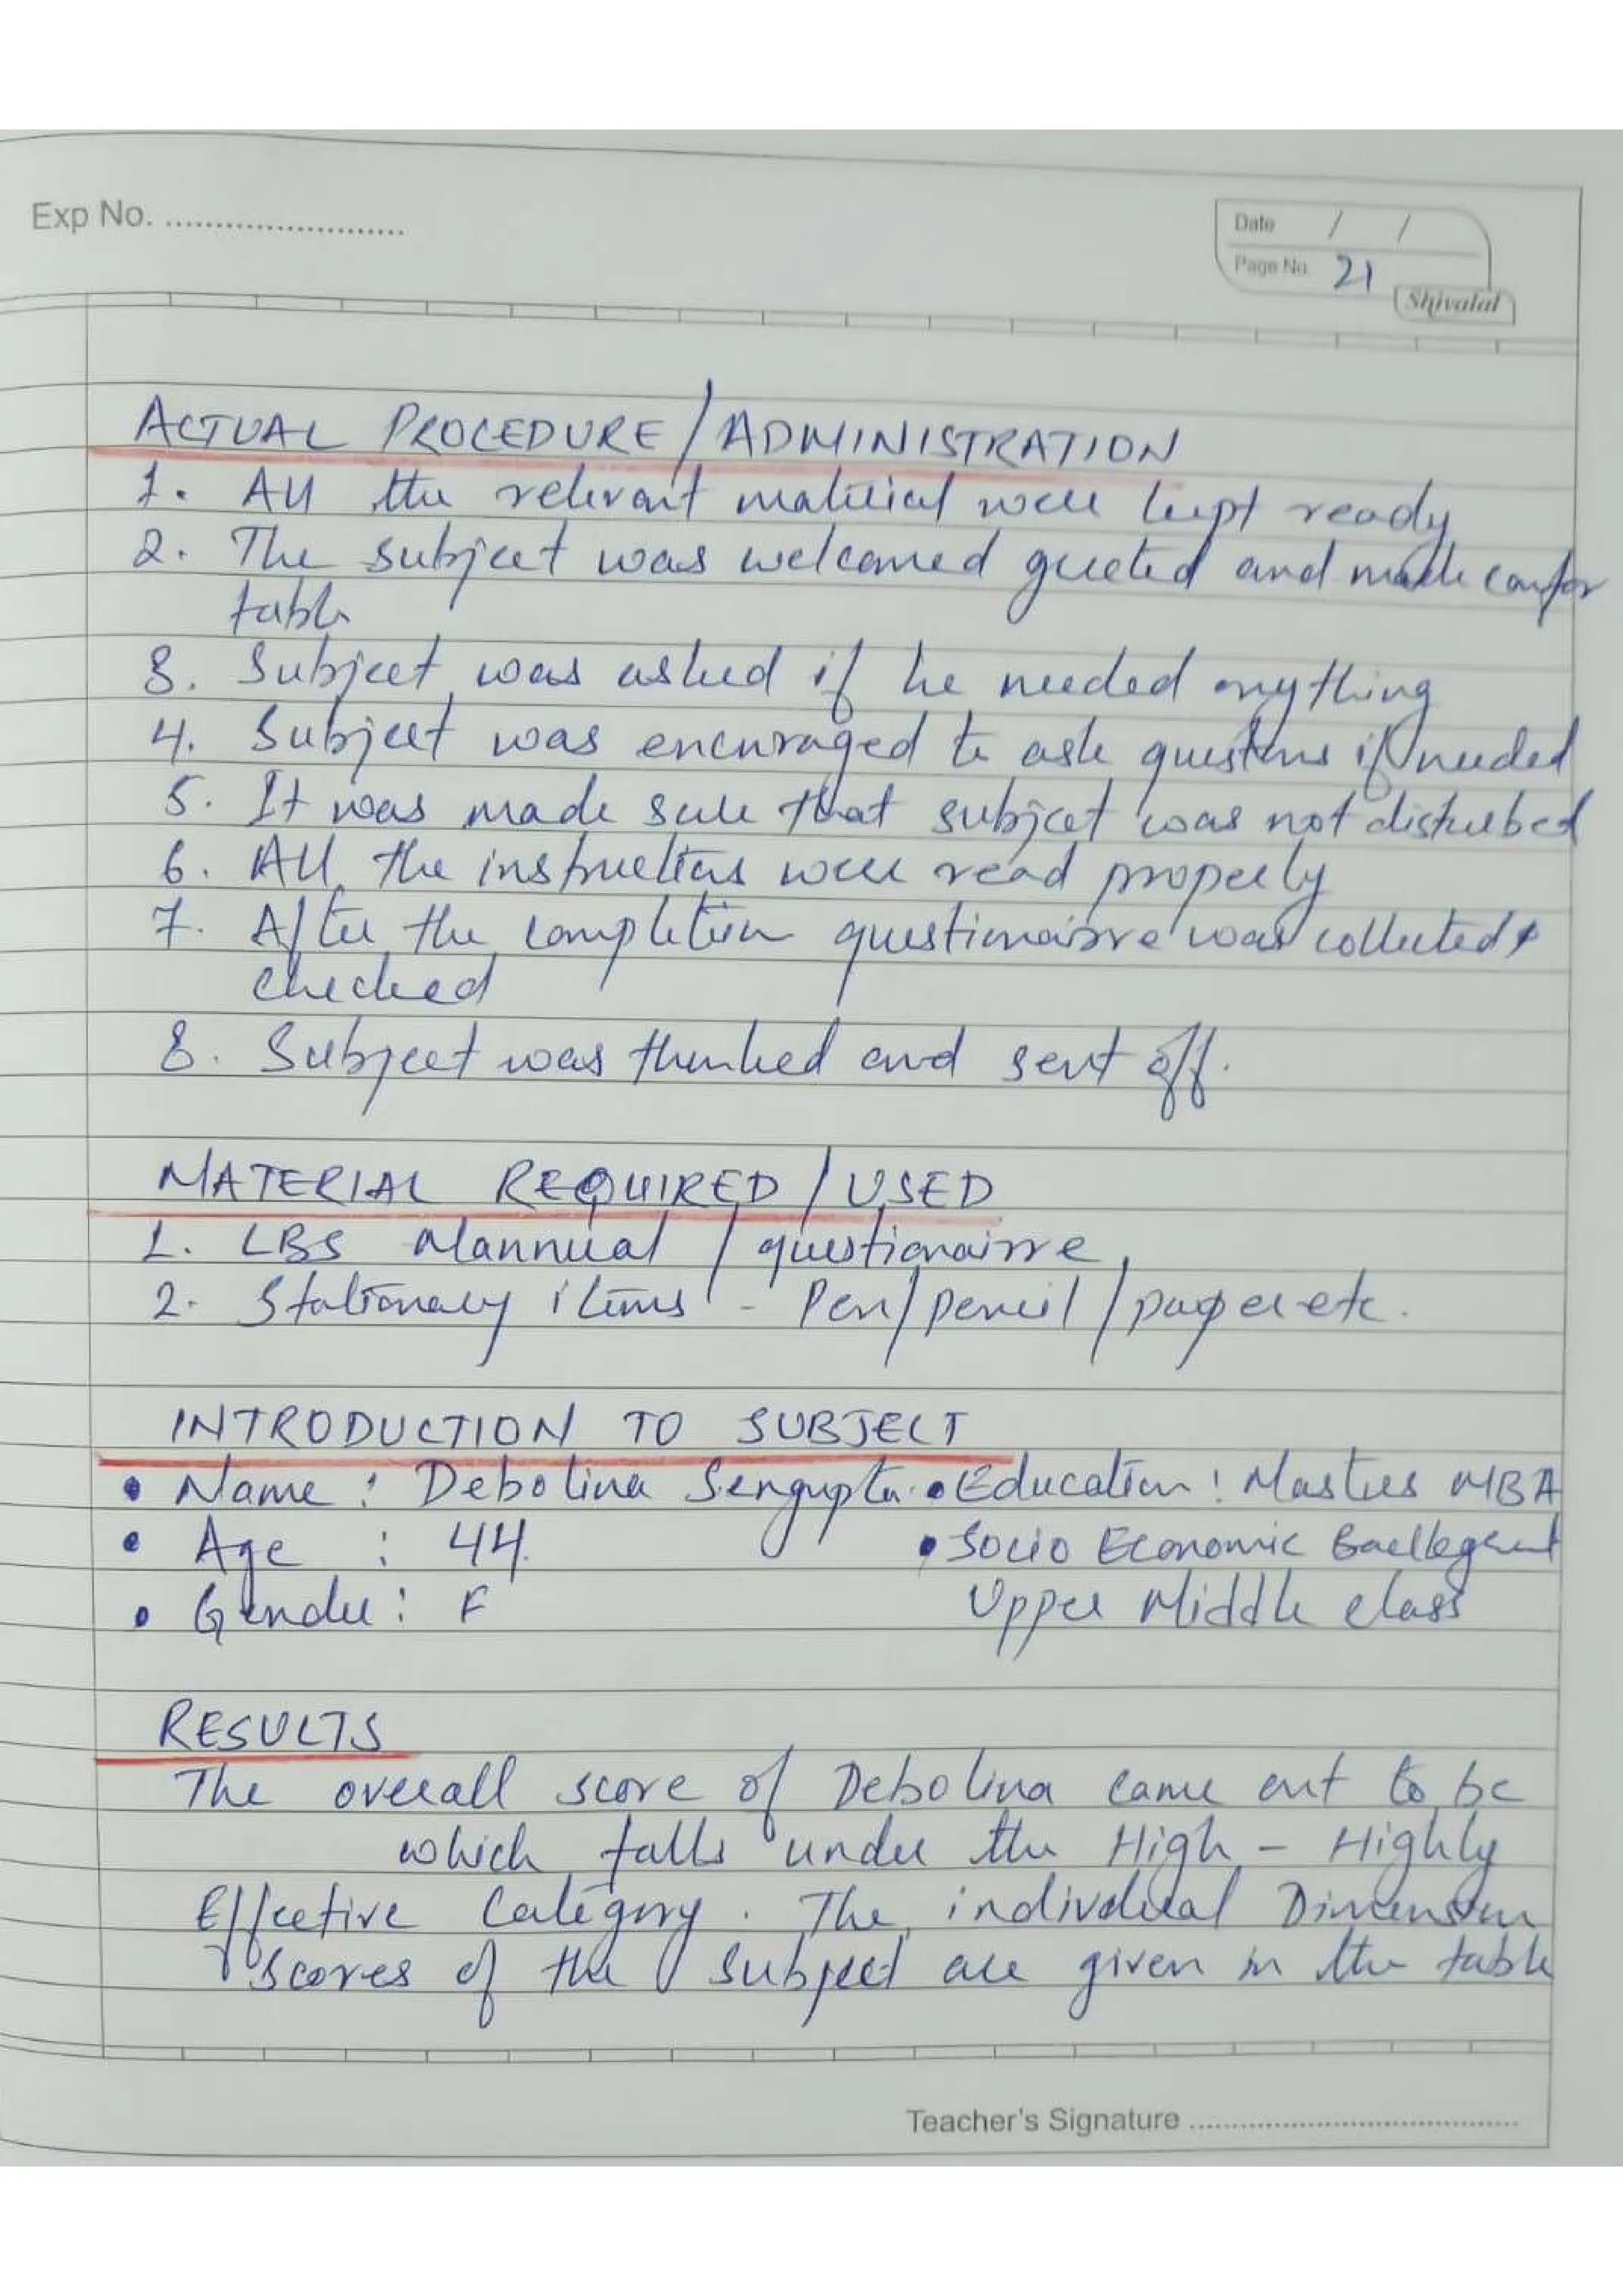 Exp No. ........................
Date / /
Page No. 21
Shivalal
ACTUAL PROCEDURE/ADMINISTRATION
1. All the relevant material were kept ready
2. The subject was welcomed greeted and made comfor
table
3. Subject was asked if he needed anything
4. Subject was encouraged to ask questions if needed
5. It was made sure that subject was not disturbed
6. All the instructions were read properly
7. After the completion questionairre was collected &
checked
8. Subject was thanked and sent off.
MATERIAL REQUIRED/USED
1. LBS Mannual / questionairre
2. Stationary items - Pen/pencil/paper etc.
INTRODUCTION TO SUBJECT
• Name : Debolina Sengupta. • Education : Masters MBA
• Age : 44. • Socio Economic
• Gender : F Upper Middle class
RESULTS
The overall score of Debolina came out to be
which falls under the High - Highly
Effective Category. The individual Dimension
scores of the subject are given in the table
Teacher's Signature ........................